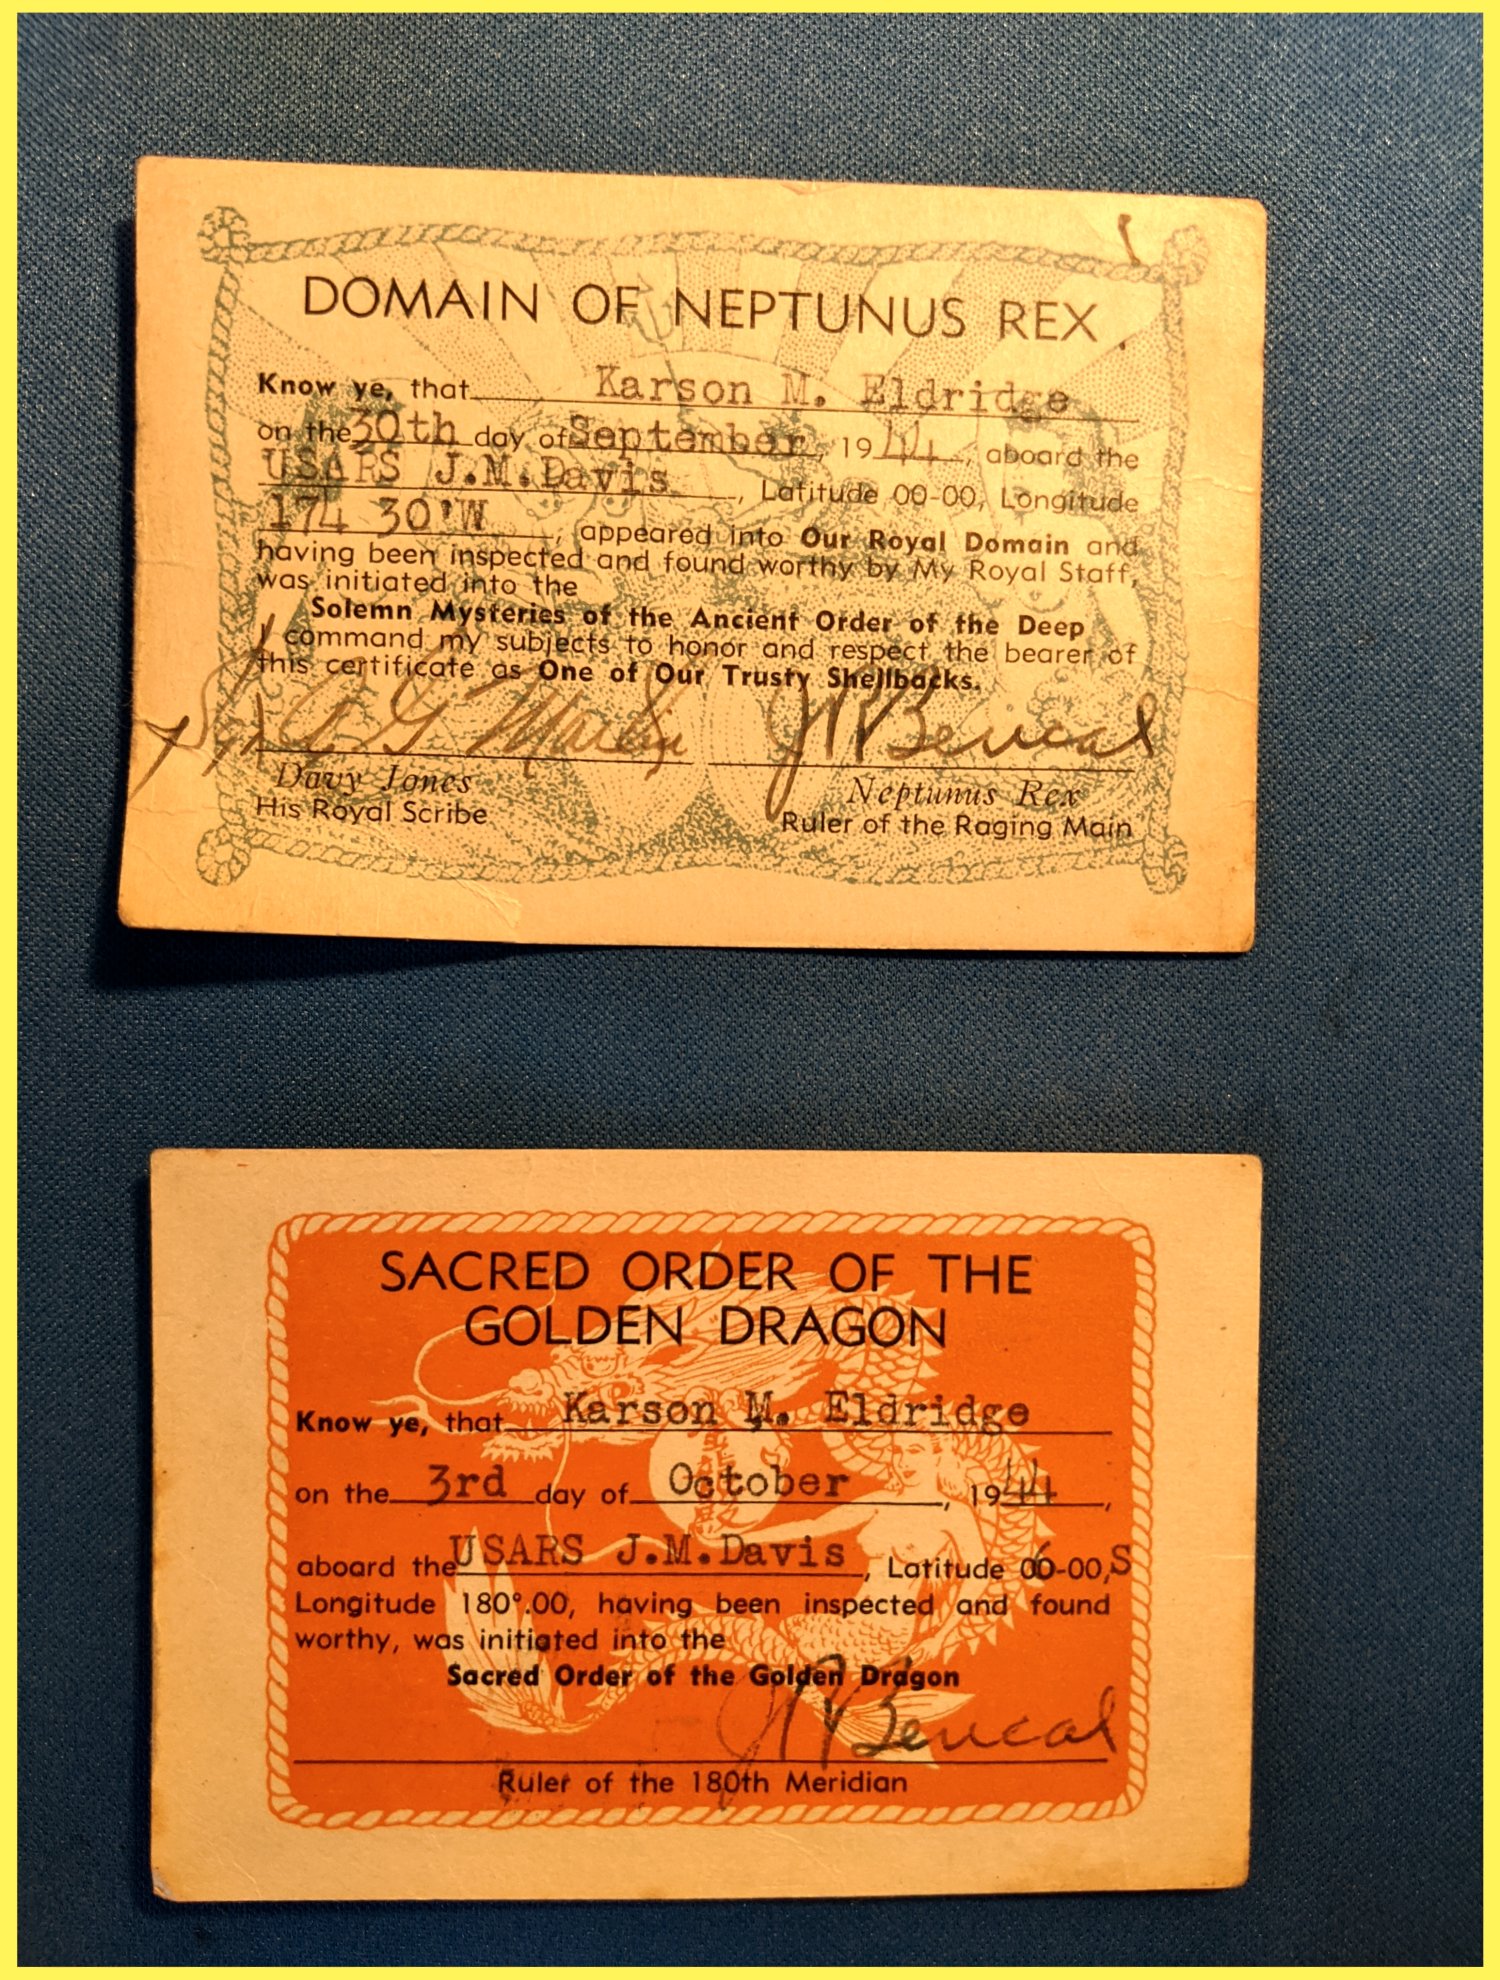 DOMAIN OF NEPTUNUS REX
Know ye, that Karson M. Eldridge
on the 30th day of September, 1944, aboard the
USARS J.M.Davis, Latitude 00-00, Longitude
174 30'W, appeared into Our Royal Domain and
having been inspected and found worthy by My Royal Staff,
was initiated into the
Solemn Mysteries of the Ancient Order of the Deep
I command my subjects to honor and respect the bearer of
this certificate as One of Our Trusty Shellbacks.
A G Martin
Davy Jones
His Royal Scribe
Neptunus Rex
Ruler of the Raging Main
SACRED ORDER OF THE
GOLDEN DRAGON
Know ye, that Karson M. Eldridge
on the 3rd day of October, 1944,
aboard the USARS J.M.Davis, Latitude 06-00,S
Longitude 180°.00, having been inspected and found
worthy, was initiated into the
Sacred Order of the Golden Dragon
Ruler of the 180th Meridian